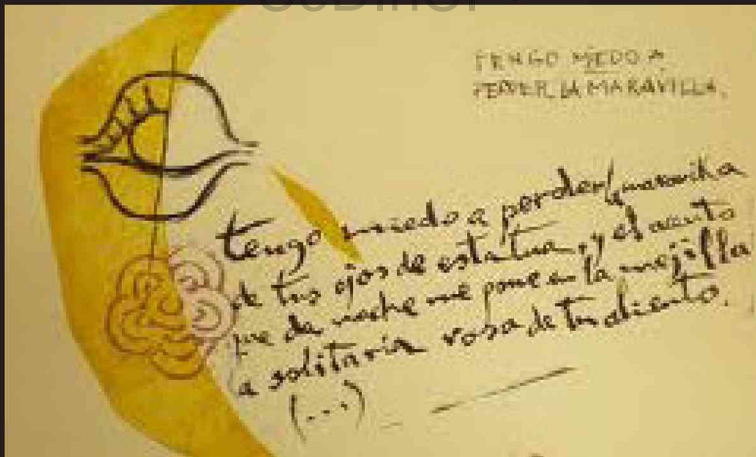 TENGO MIEDO A
PERDER LA MARAVILLA.
tengo miedo a perder la maravilla
de tus ojos de estatua, y el acento
que de noche me pone en la mejilla
la solitaria rosa de tu aliento.
(...)